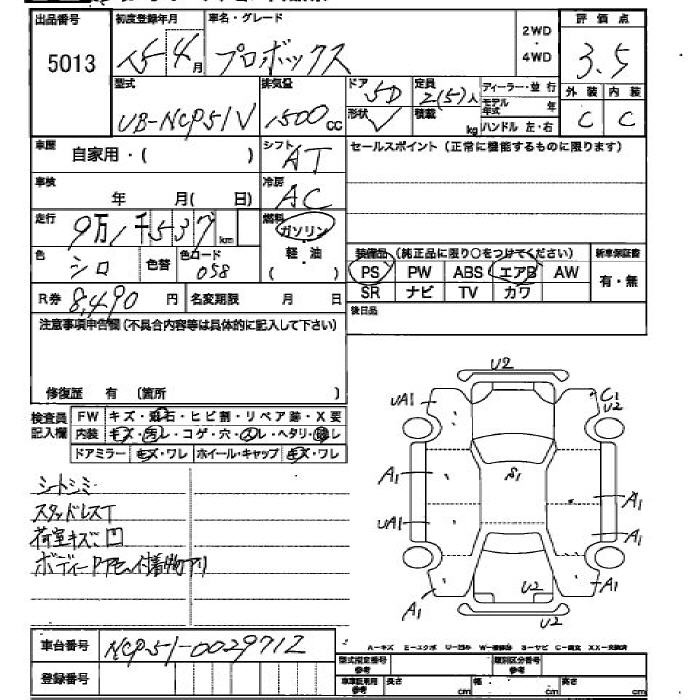 出品番号 初度登録年月 車名・グレード 2WD ・ 4WD 評価点
5013 15 4月 プロボックス 3.5
型式 排気量 ドア 5D 定員 2(5)人 ディーラー・並行 外装 内装
UB-NCP51V 1500cc 形状 V 積載 kg モデル年式 年 C C
ハンドル 左・右
車歴 自家用・( ) シフト AT セールスポイント(正常に機能するものに限ります)
車検 年 月(日) 冷房 AC
走行 9万1千537km 燃料 ガソリン
軽・油 ( )
色 シロ 色替 色コード 058 装備品(純正品に限り○をつけてください) 新車保証書
PS PW ABS エアB AW 有・無
R券 8,490円 名変期限 月 日 SR ナビ TV カワ
後日品
注意事項申告欄(不具合内容等は具体的に記入して下さい)
修復歴 有 (箇所 )
検査員記入欄 FW キズ・飛石・ヒビ割・リペア跡・X要
内装 キズ・汚レ・コゲ・穴・スレ・ヘタリ・
ドアミラー キズ・ワレ ホイール・キャップ キズ・ワレ
U2
UA1 C1
U2
A1 S1 A1
UA1 A1
U2
A1 A1
U2
シートシミ
スタッドレスT
荷室キズ凹
ボディー 付着物アリ
車台番号 NCP51-0029712
登録番号
A－キズ E－エクボ U－凹み W－補修跡 S－サビ C－腐食 XX－交換済
型式指定番号 参考 類別区分番号 参考
車庫証明用 参考 長さ cm 幅 cm 高さ cm